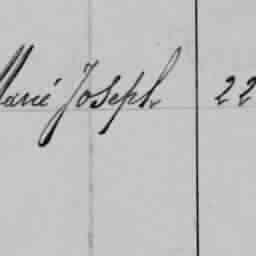 Marié Joseph 22